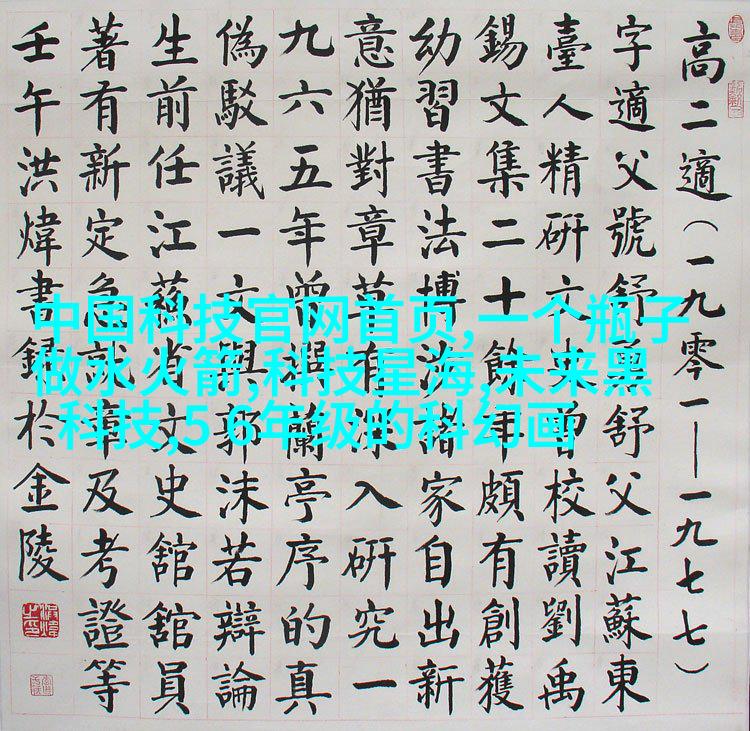 高二適（一九零一——一九七七）
字適父號舒鳧舒父江蘇東
臺人精研文史曾校讀劉禹
錫文集二十餘年頗有創獲
幼習書法博涉諸家自出新
意猶對章草有深入研究一
九六五年曾撰蘭亭序的真
偽駁議一文與郭沫若辯論
生前任江蘇省文史舘舘員
著有新定急就章及考證等
壬午洪煒書錄於金陵
中国科技官网首页,一个瓶子
做水火箭,科技星海,未来黑
科技,5 6年级的科幻画